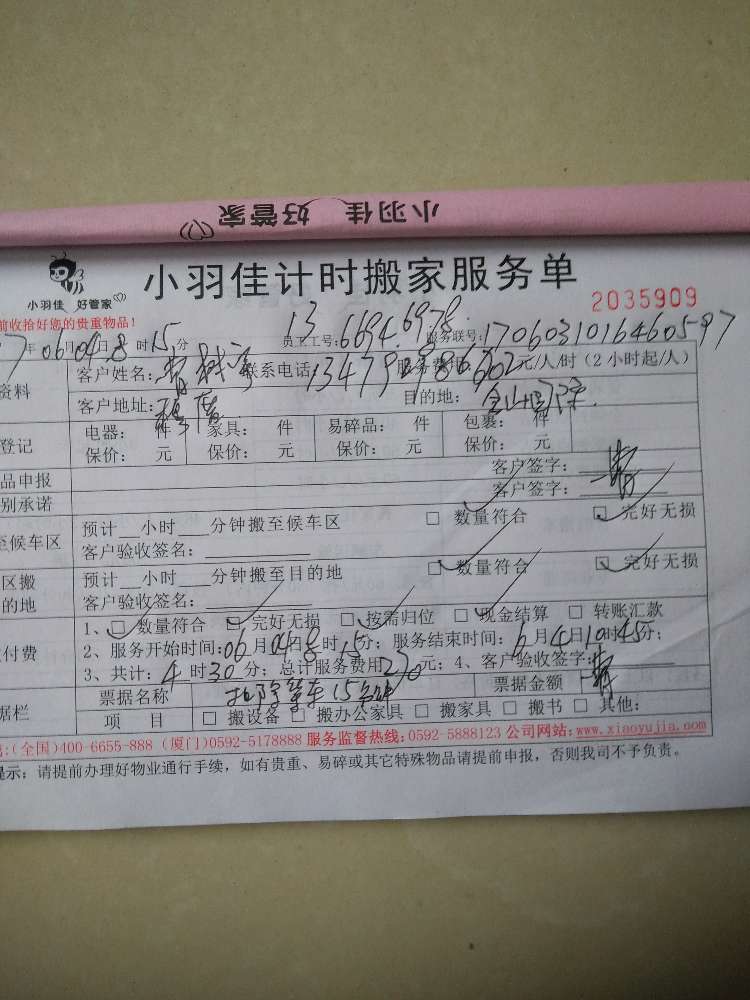 小羽佳 好管家
小羽佳 好管家
小羽佳计时搬家服务单
2035909
前收拾好您的贵重物品！
7年06月04日8时15分 员工工号：13 6694.6978. 服务联号：1706031016460597
资料 客户姓名：曹 联系电话：13479 服务费 元/人/时（2小时起/人）
客户地址： 目的地：金山
登记 电器： 件 家具： 件 易碎品： 件 包裹： 件
保价： 元 保价： 元 保价： 元 保价： 元
品申报 客户签字：
别承诺 客户签字：
至候车区 预计__小时___分钟搬至候车区 □ 数量符合 □ 完好无损
客户验收签名：
区搬 预计__小时___分钟搬至目的地 □ 数量符合 □ 完好无损
的地 客户验收签名：
付费 1、□ 数量符合 □ 完好无损 □ 按需归位 □ 现金结算 □ 转账汇款
2、服务开始时间：06月04日8时15分；服务结束时间：6月4日10时45分；
3、共计：4时30分；总计服务费用270元；4、客户验收签字：
据栏 票据名称 扣除等车15分钟 票据金额
项 目 □ 搬设备 □ 搬办公家具 □ 搬家具 □ 搬书 □ 其他：
：(全国)400-6655-888 (厦门)0592-5178888 服务监督热线：0592-5888123 公司网站：www.xiaoyujia.com
提示：请提前办理好物业通行手续，如有贵重、易碎或其它特殊物品请提前申报，否则我司不予负责。